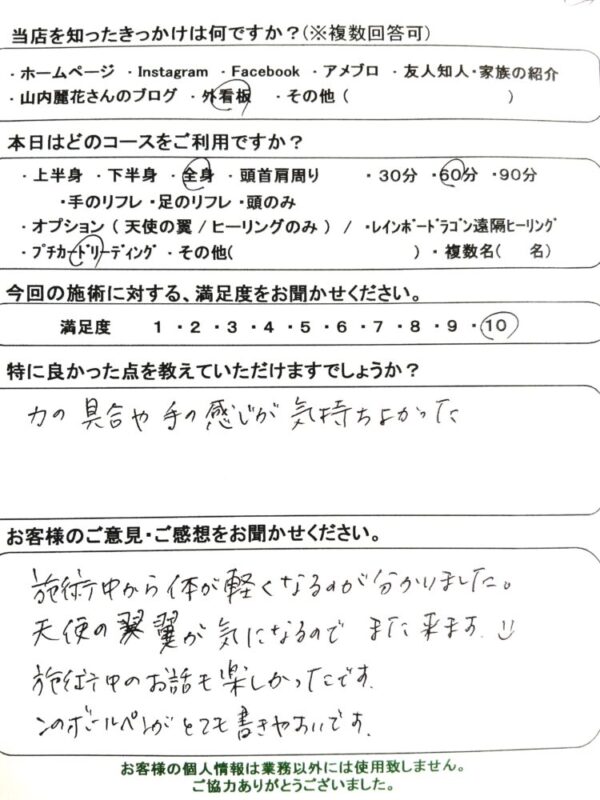 当店を知ったきっかけは何ですか？(※複数回答可)
・ホームページ ・Instagram ・Facebook ・アメブロ ・友人知人・家族の紹介
・山内麗花さんのブログ ・外看板 ・その他（ ）
本日はどのコースをご利用ですか？
・上半身 ・下半身 ・全身 ・頭首肩周り ・30分 ・60分 ・90分
・手のリフレ ・足のリフレ ・頭のみ
・オプション（ 天使の翼 / ヒーリングのみ ） / ・レインボードラゴン遠隔ヒーリング
・プチカードリーディング ・その他( ) ・複数名( 名)
今回の施術に対する、満足度をお聞かせください。
満足度 1 ・2 ・3 ・4 ・5 ・6 ・7 ・8 ・9 ・10
特に良かった点を教えていただけますでしょうか？
力の具合や手の感じが気持ちよかった
お客様のご意見・ご感想をお聞かせください。
施術中から体が軽くなるのが分かりました。
天使の翼が気になるので また来ます。
施術中のお話も楽しかったです。
このボールペンがとても書きやすいです。
お客様の個人情報は業務以外には使用致しません。
ご協力ありがとうございました。